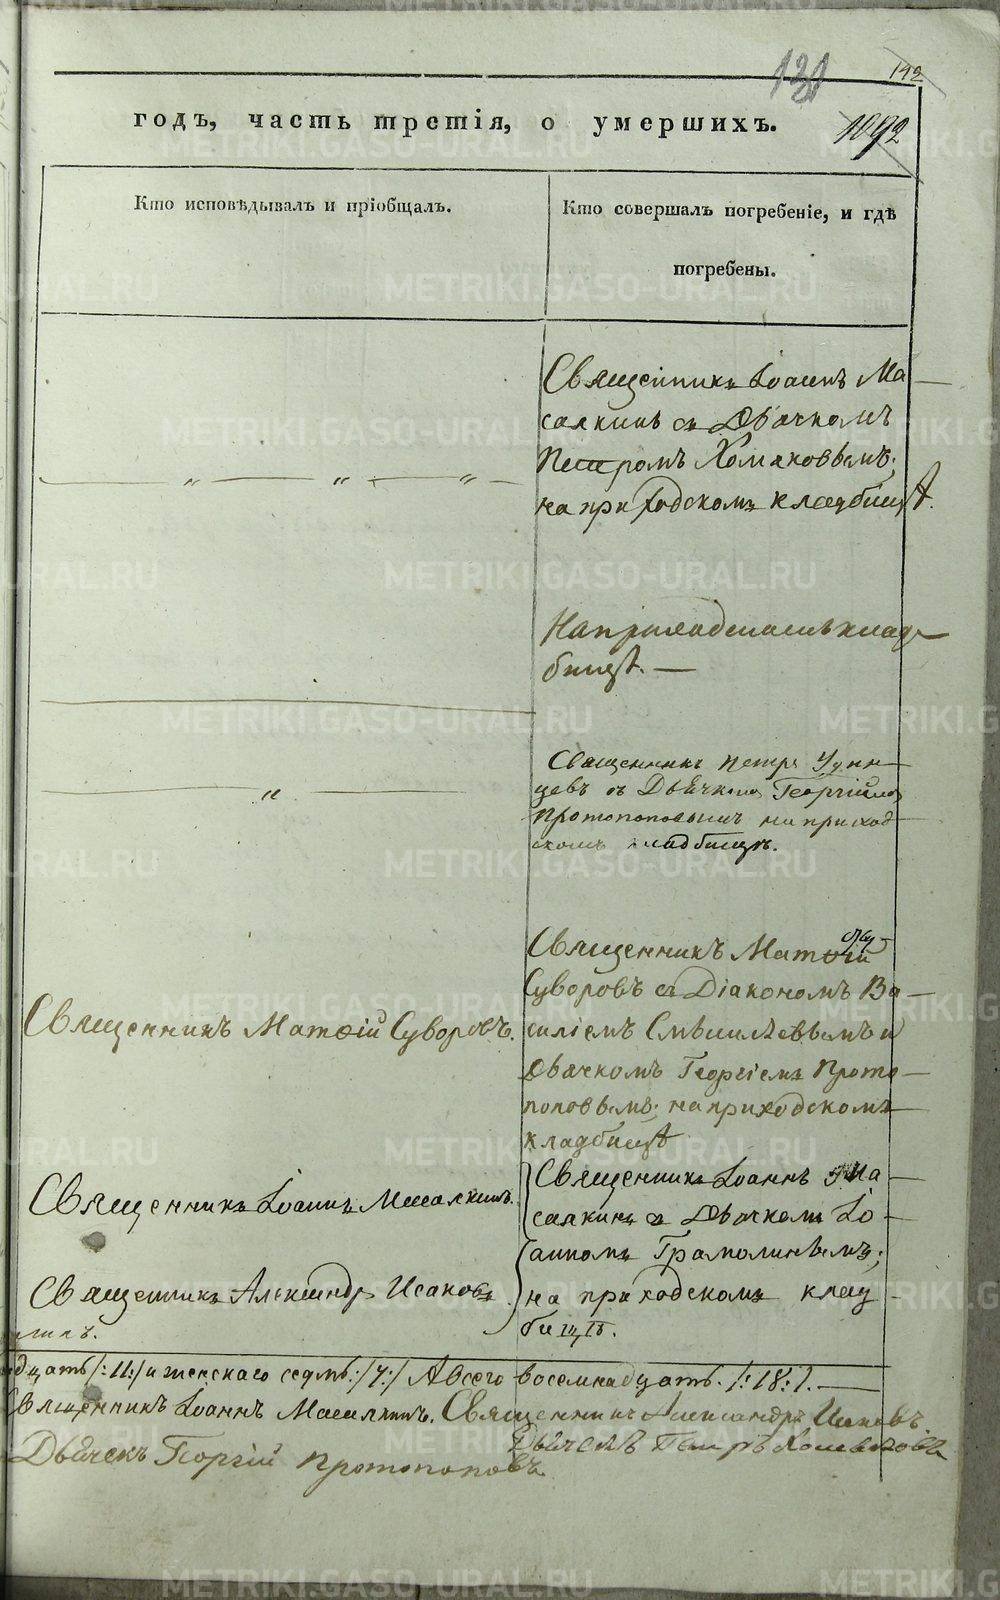 131
142
годъ, часть третія, о умершихъ.
1092
Кто исповѣдывалъ и пріобщалъ.
Кто совершалъ погребеніе, и гдѣ
погребены.
Священникъ Іоаннъ Ма
салкинъ съ Дьячкомъ
Петромъ Хомяковымъ,
на приходскомъ кладбищѣ.
На приходскомъ клад
бищѣ.
Священникъ Петръ
цевъ съ Дьячкомъ Георгіемъ
Протопоповымъ на приход
скомъ кладбищѣ.
Священникъ Матѳій
Суворовъ съ Діакономъ Ва
силіемъ и
Дьячкомъ Георгіемъ Прото
поповымъ, на приходскомъ
кладбищѣ
Священникъ Матѳій Суворовъ.
Священникъ Іоаннъ Ма
салкинъ съ Дьячкомъ Іо
анномъ Грамолинымъ,
на приходскомъ клад
бищѣ.
Священникъ Іоаннъ Масалкинъ.
Священникъ Александръ Исаковъ
дцать /:11:/ и женскаго седмь /:7:/ А всего восемнадцать. /:18:/.
Священникъ Іоаннъ Масалкинъ. Священникъ Александръ Исаковъ
Дьячекъ Георгій Протопоповъ
Дьячекъ Петръ Хомяковъ
METRIKI.GASO-URAL.RU